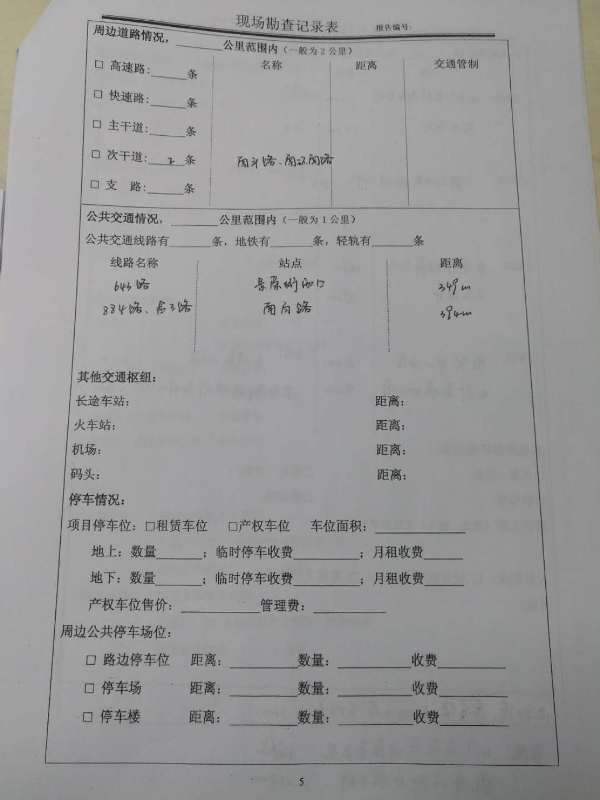 现场勘查记录表 报告编号:
周边道路情况，______公里范围内（一般为2公里）
名称 距离 交通管制
□ 高速路:______条
□ 快速路:______条
□ 主干道:______条
□ 次干道:__2__条
□ 支 路:______条
公共交通情况，______公里范围内（一般为1公里）
公共交通线路有______条，地铁有______条，轻轨有______条
线路名称 站点 距离
643路 349m
384m
其他交通枢纽：
长途车站： 距离：
火车站： 距离：
机场： 距离：
码头： 距离：
停车情况：
项目停车位：□租赁车位 □产权车位 车位面积：__________
地上：数量______；临时停车收费________；月租收费______
地下：数量______；临时停车收费________；月租收费______
产权车位售价：__________管理费：__________
周边公共停车场位：
□ 路边停车位 距离：________数量：________收费________
□ 停车场 距离：________数量：________收费________
□ 停车楼 距离：________数量：________收费________
5